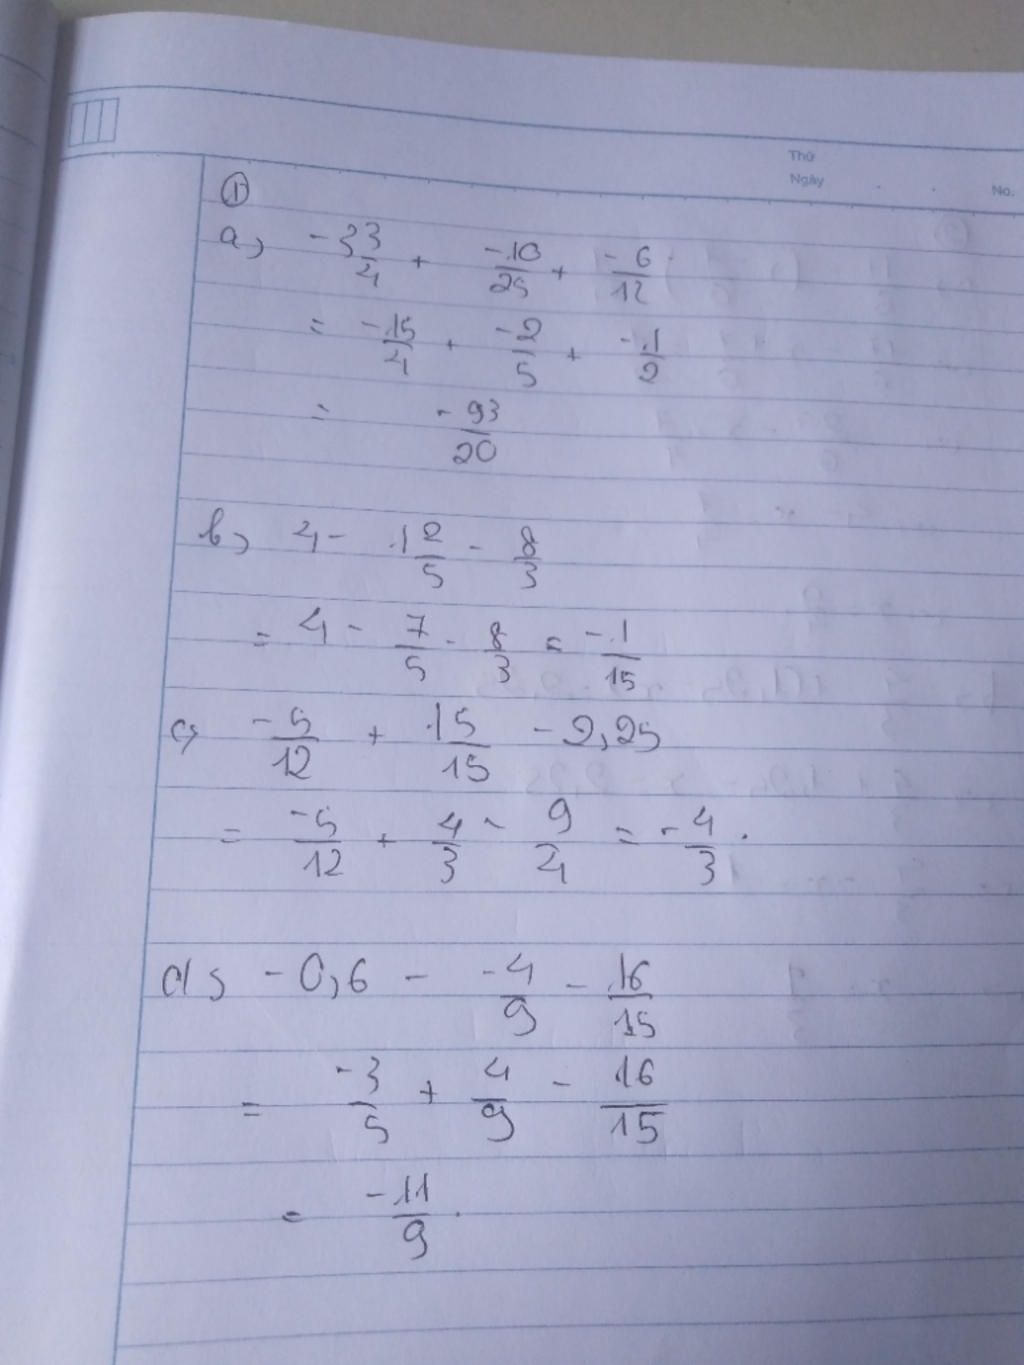 Thứ
Ngày
No.
①
a, -33/4 + -10/25 + -6/12
= -15/4 + -2/5 + -1/2
= -93/20
b, 4 - 1 2/5 - 8/3
= 4 - 7/5 - 8/3 = -1/15
c, -5/12 + 15/15 - 2,25
= -5/12 + 4/3 - 9/4 = -4/3.
d, -0,6 - -4/9 - 16/15
= -3/5 + 4/9 - 16/15
= -11/9.